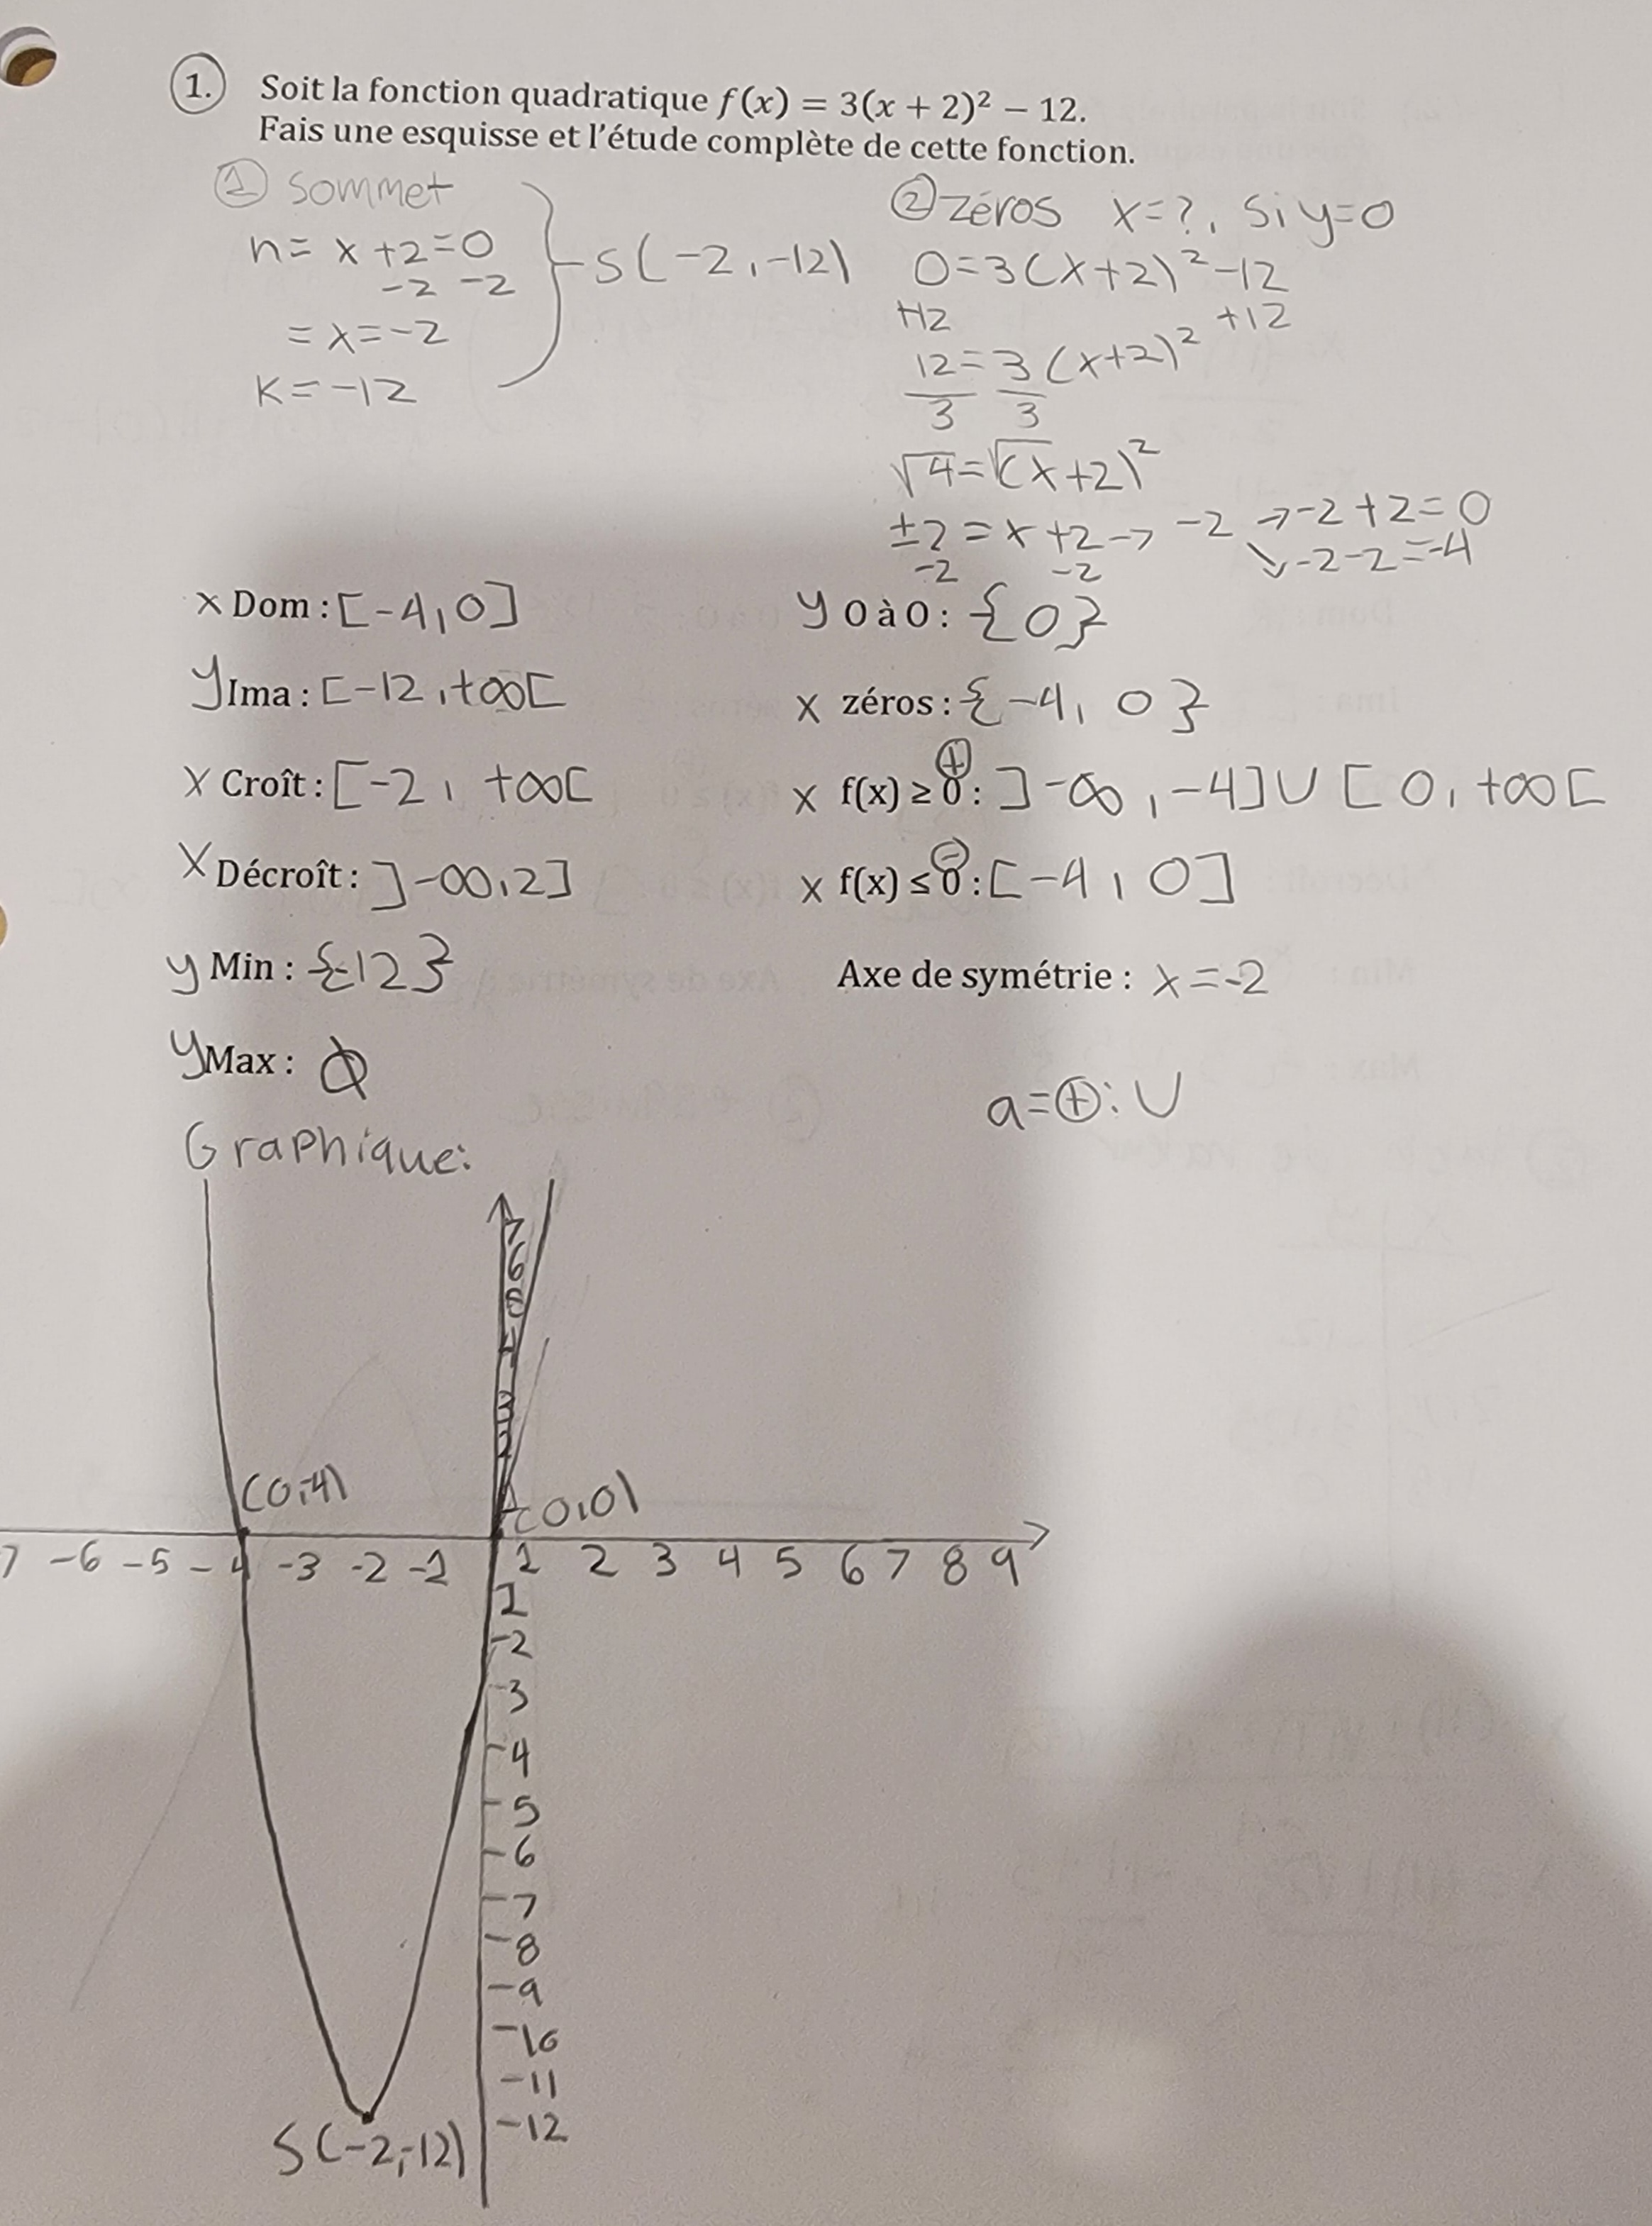 1. Soit la fonction quadratique f(x) = 3(x + 2)² − 12.
Fais une esquisse et l'étude complète de cette fonction.
① Sommet
h= x +2=0
-2 -2
= x=-2
K=-12
S(-2,-12)
② zéros x=?, si y=0
0=3(x+2)²-12
+12 +12
12=3(x+2)²
3 3
√4=√(x+2)²
±2=x+2→ -2 →-2+2=0
-2 -2 ↘-2-2=-4
x Dom : [-4,0]
y 0 à 0 : {0}
y Ima : [-12,+∞[
x zéros : {-4, 0}
x Croît : [-2, +∞[
x f(x) ≥ 0 : ⊕ ]-∞,-4]∪[0,+∞[
x Décroît : ]-∞,2]
x f(x) ≤ 0 : ⊖ [-4,0]
y Min : {-12}
Axe de symétrie : x=-2
y Max : Ø
a=⊕: ∪
Graphique:
7
6
5
4
3
2
1
(0,-4) (0,0)
7 -6 -5 -4 -3 -2 -1 1 2 3 4 5 6 7 8 9
1
-2
-3
-4
-5
-6
-7
-8
-9
-10
-11
-12
S(-2,-12)